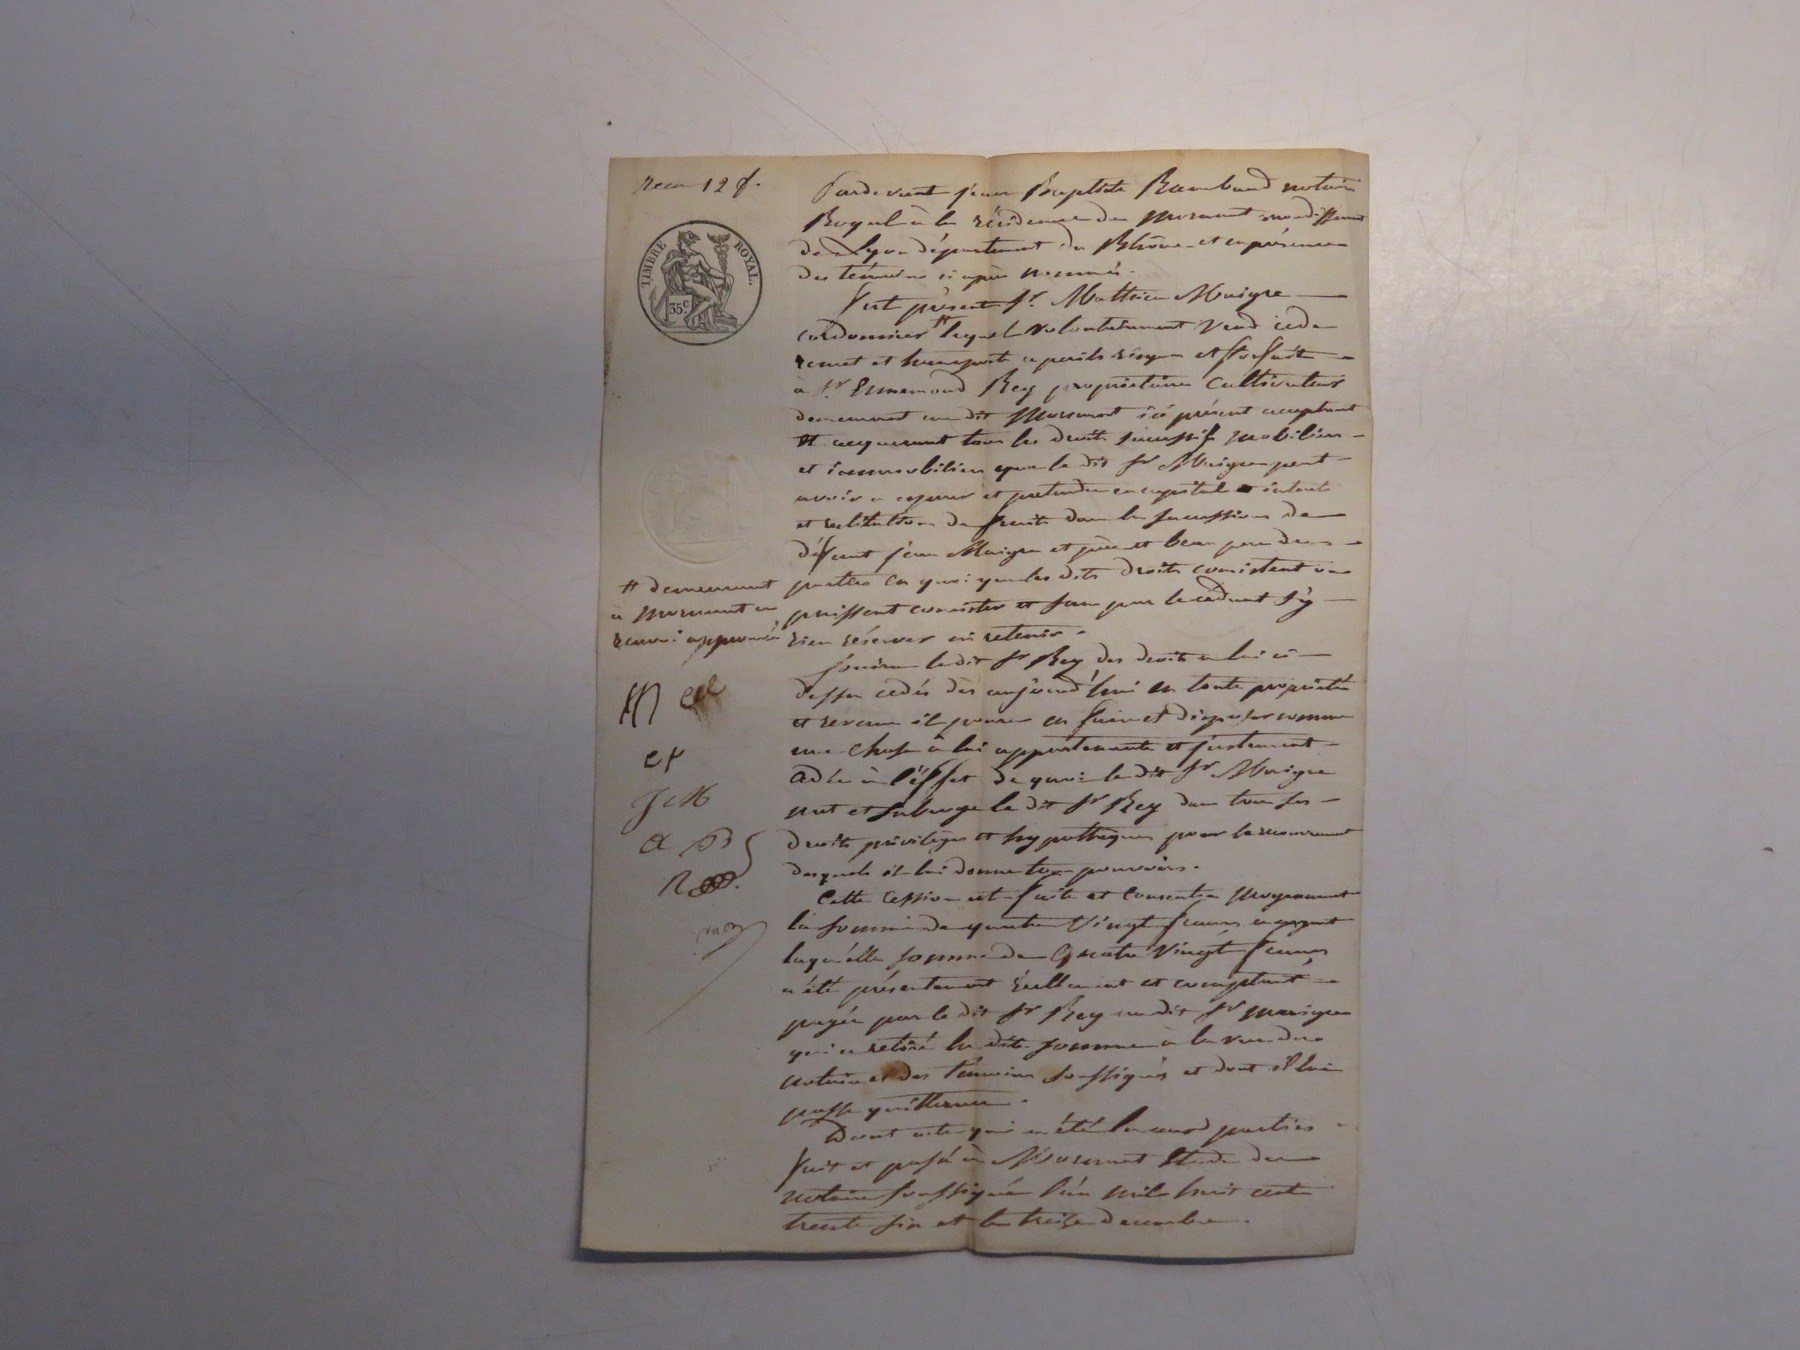 reçu 12 f.
TIMBRE ROYAL.
35 c
Pardevant jean Baptiste Rambaud notaire
Royal à la résidence de Mornant arrondissement
de Lyon département du Rhône et en présence
des témoins ci après nommés.
Est présent Sr. Mathieu Maigre
cordonnier # lequel volontairement vend cede
remet et transporte a perils risques et forfait
à Sr. Ennemond Rey propriétaire cultivateur
demeurant au dit Mornant ici présent acceptant
et acquerant tous les droits successifs mobiliers
et immobiliers que le dit Sr Maigre peut
avoir a exiger et pretendre en capital interets
et restitution de fruits dans la succession de
défunt jean Maigre et père et beau pere des
parties en quoi que les dits droits consistent ou
puissent consister et sans par le cédant s'y
rien réserver ni retenir.
# demeurant
à Mornant en
renvoi approuvé
M
et
J M
R
jouira le dit Sr Rey des droits a lui ci
dessus cedés dès aujourd'hui en toute propriété
et revenu il pourra en faire et disposer comme
une chose à lui appartenante et justement
à l'effet de quoi le dit Sr Maigre
met et subroge le dit Sr Rey dans tous ses
droits priviléges et hypothèques pour le recouvrement
desquels il lui donne tous pouvoirs.
Cette cession est faite et consentie moyennant
la somme de quatre vingt francs en argent
laquelle somme de Quatre vingt francs
a été présentement réellement et comptant
payée par le dit Sr Rey au dit Sr Maigre
qui a retiré la dite somme à la vue des
notaire et des témoins soussignés et dont il lui
passe quittance.
Dont acte qui a été lu aux parties
fait et passé à Mornant Etude du
notaire soussigné l'an mil huit cent
trente six et le treize decembre.